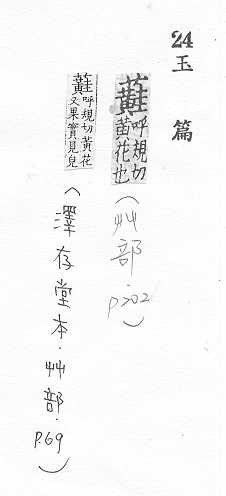 24 玉篇
蘳 呼規切
黃花也
(艸部.p202)
蘳 呼規切黃花
又果實見皃
(澤存堂本.艸部.p.69)